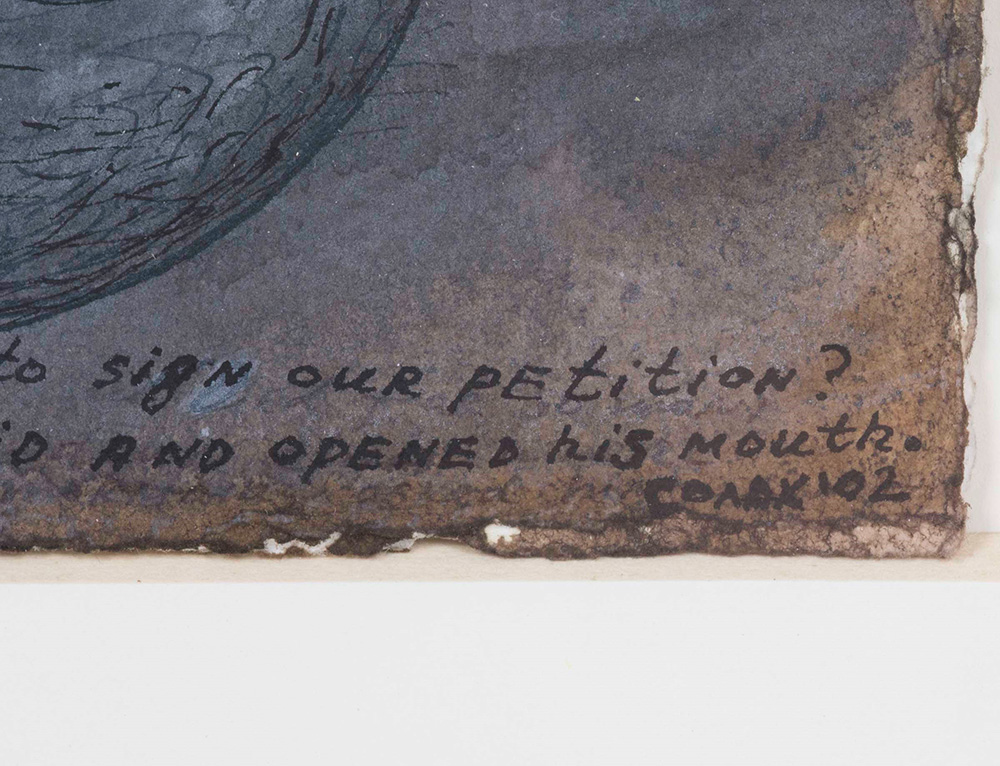 to sign OUR PEtition?
iD AND OPENED his mouth.
'02